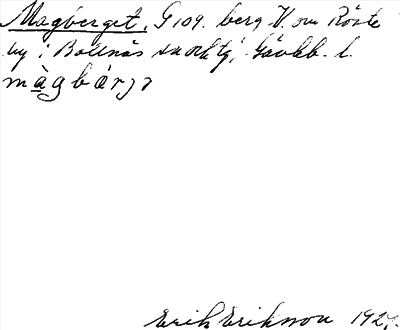 Magberget, G 109. berg V. om Röste
by i Bollnäs sn och tg, Gävleb. l.
màgbárjə
Erik Erikson 192